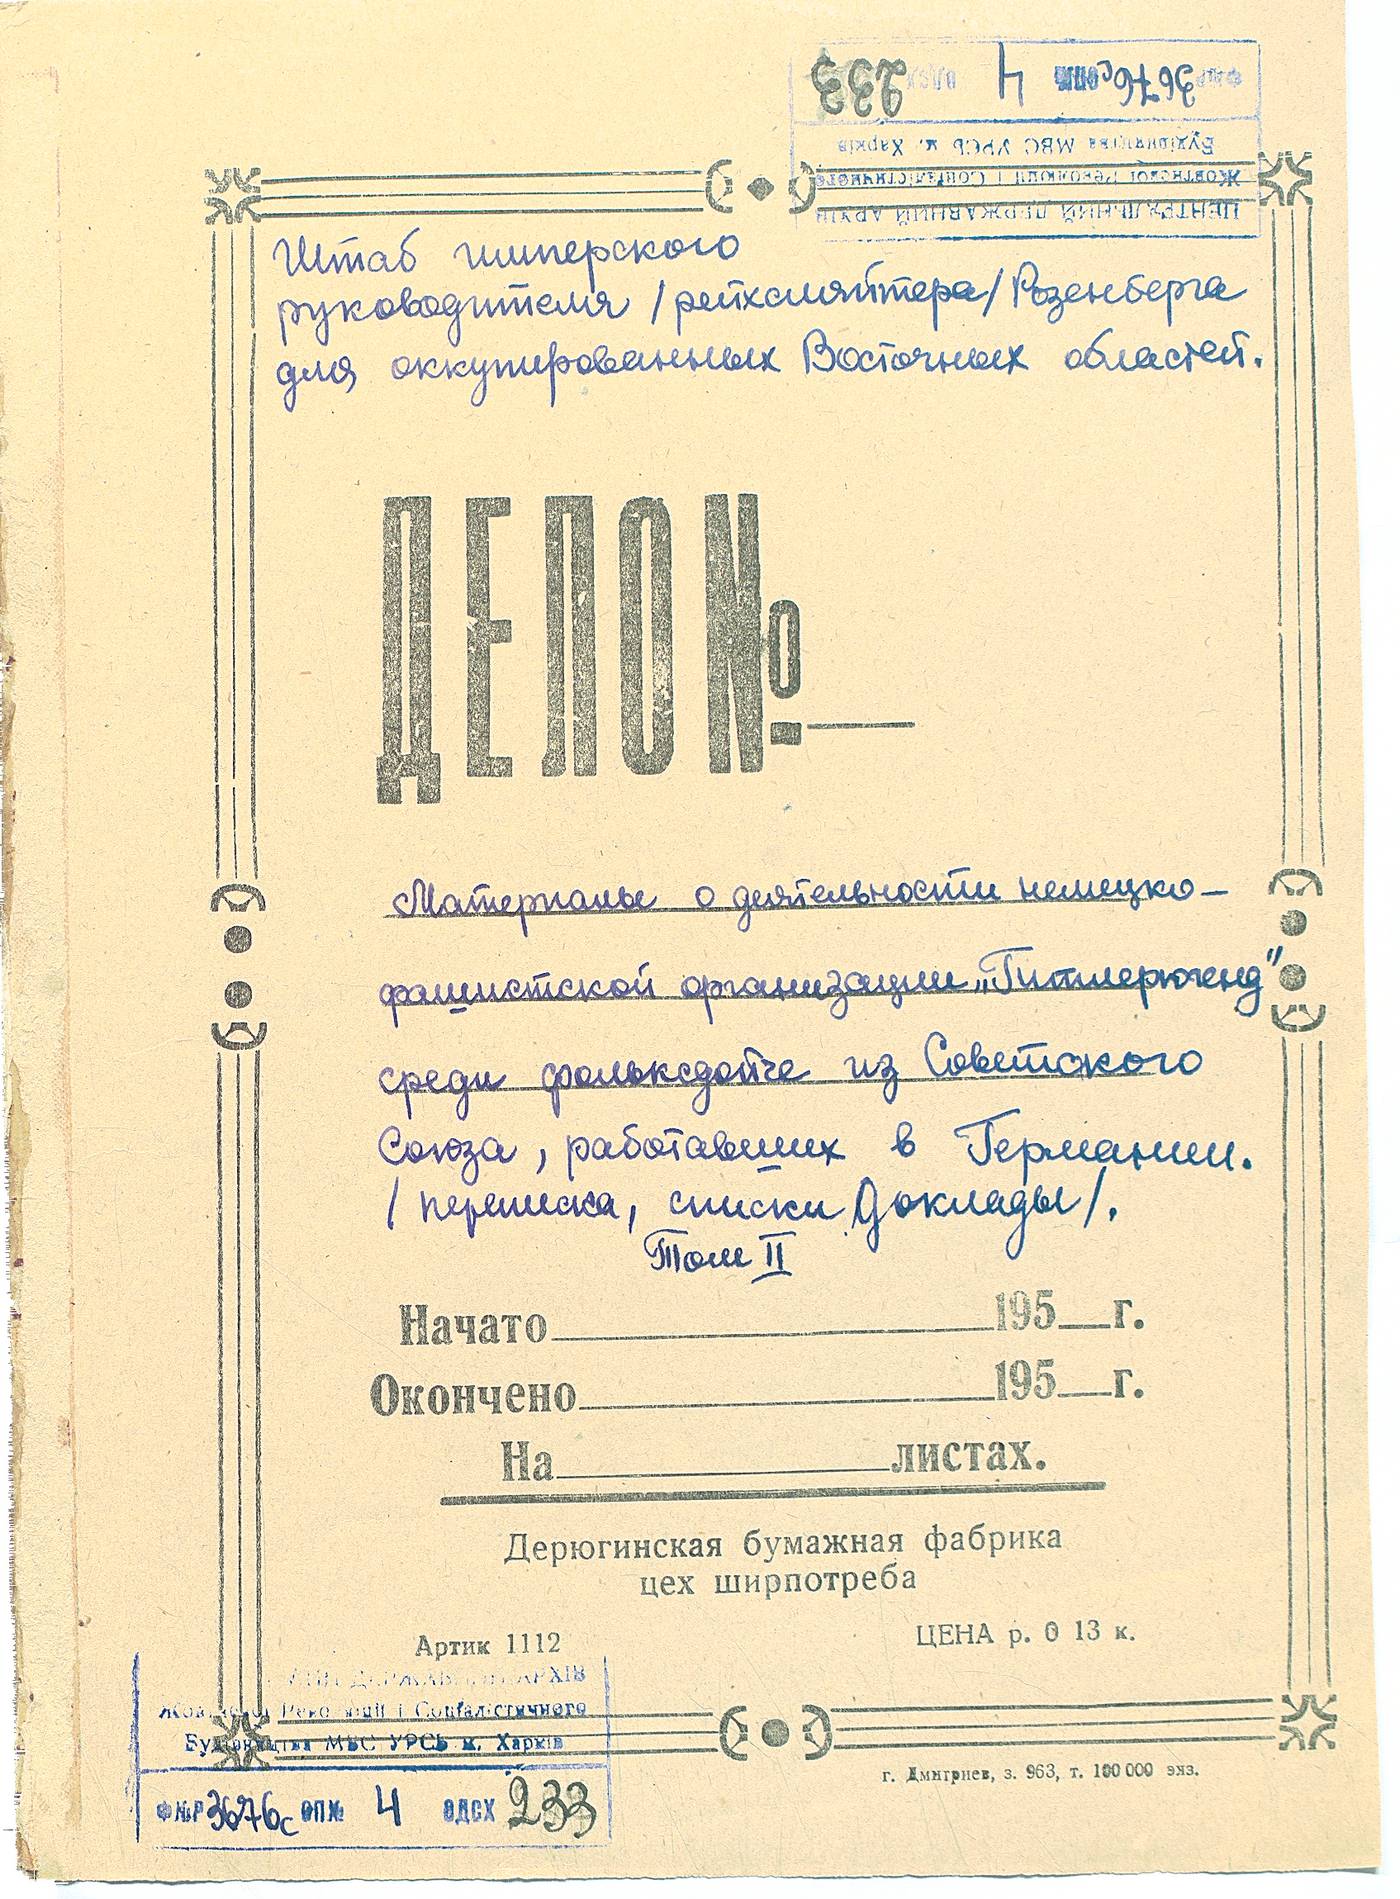 Фир 3676с ОПИ 4 ОДСХ 233
ЦЕНТРАЛЬНИЙ ДЕРЖАВНИЙ АРХІВ
Жовтневої Революції і Соціалістичного
Будівництва МВС УРСР м. Харків
Штаб имперского
руководителя /рейхсляйтера/ Розенберга
для оккупированных Восточных областей.
ДЕЛО №
Материалы о деятельности немецко-
фашистской организации „Гитлерюгенд"
среди фольксдойче из Советского
Союза, работавших в Германии.
/переписка, списки, доклады/.
Том II
Начато 195 г.
Окончено 195 г.
На листах.
Дерюгинская бумажная фабрика
цех ширпотреба
Артик 1112
ЦЕНА р. 0 13 к.
ДЕРЖАВНИЙ АРХІВ
Жовтневої Революції і Соціалістичного
Будівництва МВС УРСР м. Харків
Ф№Р 3676с ОП№ 4 ОДСХ 233
г. Дмитриев, з. 963, т. 100 000 экз.